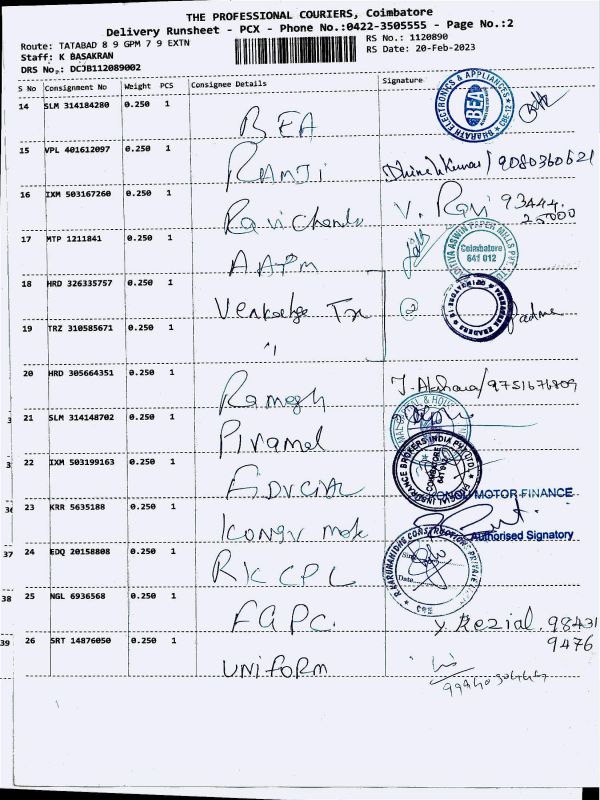 THE PROFESSIONAL COURIERS, Coimbatore
Delivery Runsheet - PCX - Phone No.:0422-3505555 - Page No.:2
Route: TATABAD 8 9 GPM 7 9 EXTN
RS No.: 1120890
Staff: K BASAKRAN
RS Date: 20-Feb-2023
DRS No.: DCJB112089002
S No Consignment No Weight PCS Consignee Details Signature
14 SLM 314184280 0.250 1
BEA
BHARATH ELECTRONICS & APPLIANCES
BEA
CBE-12
15 VPL 401612097 0.250 1
RAMJI
Dhinesh Kumar / 9080360621
16 IXM 503167260 0.250 1
Ravichandr
V. Ravi 93444.
25000
17 MTP 1211841 0.250 1
AAPM
ADITYA ASWIN PAPER MILLS PVT. LTD
Coimbatore
641 012
18 HRD 326335757 0.250 1
Venkatge Tx
2
Padma
19 TRZ 310585671 0.250 1
"
20 HRD 305664351 0.250 1
Ramesh
T. Akshara / 9751676809
21 SLM 314148702 0.250 1
Piramel
22 IXM 503199163 0.250 1
FIDUCIAL
INSURANCE BROKERS INDIA PVT LTD
COIMBATORE
641 012
23 KRR 5635188 0.250 1
KONGU MOTOR FINANCE
Kongu Mot
Authorised Signatory
36
24 EDQ 20158808 0.250 1
37
RKCPL
R.KARUNANIDHI CONSTRUCTION PRIVATE LIMITED
Sign
Date
25 NGL 6936568 0.250 1
38
FAPC.
Y. Rezial. 98431
9476
26 SRT 14876050 0.250 1
39
UNIFORM
9994030444